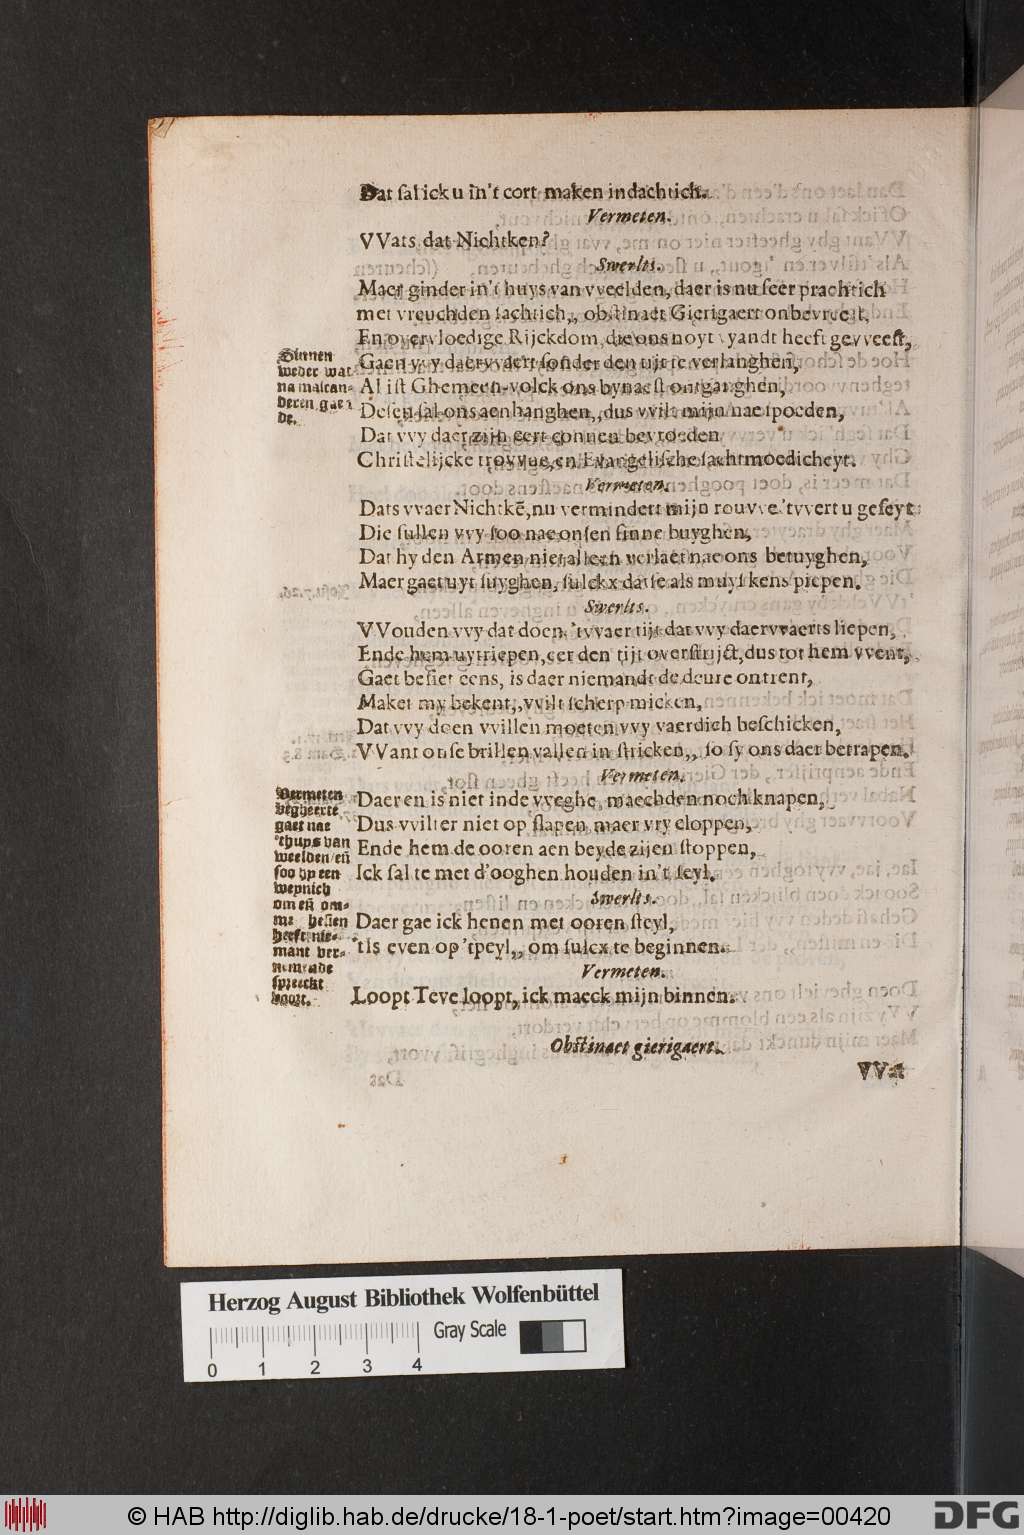 Dat sal ick u in't cort maken indachtich.
Vermeten.
VVats dat Nichtken?
Swerlts.
Maer ginder in't huys van vveelden, daer is nu seer prachtich
met vreuchden sachtich,, obstinaet Gierigaert onbevreest,
En overvloedige Rijckdom, die ons noyt vyandt heeft gevveest,
Gaen vvy daervvaert sonder den tijt te verlanghen,
Al ist Ghemeen-volck ons bynaest ontganghen,
Desen sal ons aenhanghen,, dus vvilt mijn nae spoeden,
Dat vvy daer zijn eert connen bevroeden
Christelijcke trovvue, en Evangelische sachtmoedicheyt.
Vermeten.
Dats vvaer Nichtkē, nu vermindert mijn rouvve 'tvvert u geseyt
Die sullen vvy soo nae onsen sinne buyghen,
Dat hy den Armen niet alleen verlaet nae ons betuyghen,
Maer gaet uyt suyghen, sulckx dat se als muyskens piepen.
Swerlts.
VVouden vvy dat doen, 'tvvaer tijt dat vvy daervvaerts liepen,
Ende hem uytriepen, eer den tijt overstrijct, dus tot hem vvent,
Gaet besiet eens, is daer niemandt de deure ontrent,
Maket my bekent,, vvilt scherp micken,
Dat vvy doen vvillen moeten vvy vaerdich beschicken,
VVant onse brillen vallen in stricken,, so sy ons daer betrapen.
Vermeten.
Daer en is niet inde vveghe, maechden noch knapen,
Dus vvilter niet op slapen maer vry cloppen,
Ende hem de ooren aen beyde zijen stoppen,
Ick sal te met d'ooghen houden in't seyl.
Swerlts.
Daer gae ick henen met ooren steyl,
'tIs even op 'tpeyl,, om sulcx te beginnen.
Vermeten.
Loopt Teve loopt, ick maeck mijn binnen.
Obstinaet gierigaert.
VVat
Sinnen
weder wat
na malcan-
deren gaen
de.
Vermeten
begheerte
gaet nae
'thuys van
weelden/ eñ
soo hy een
weynich
om eñ om-
me besien
heeft nie-
mant ver-
nemende
spreeckt
voort.
Herzog August Bibliothek Wolfenbüttel
Gray Scale
0 1 2 3 4
© HAB http://diglib.hab.de/drucke/18-1-poet/start.htm?image=00420
DFG